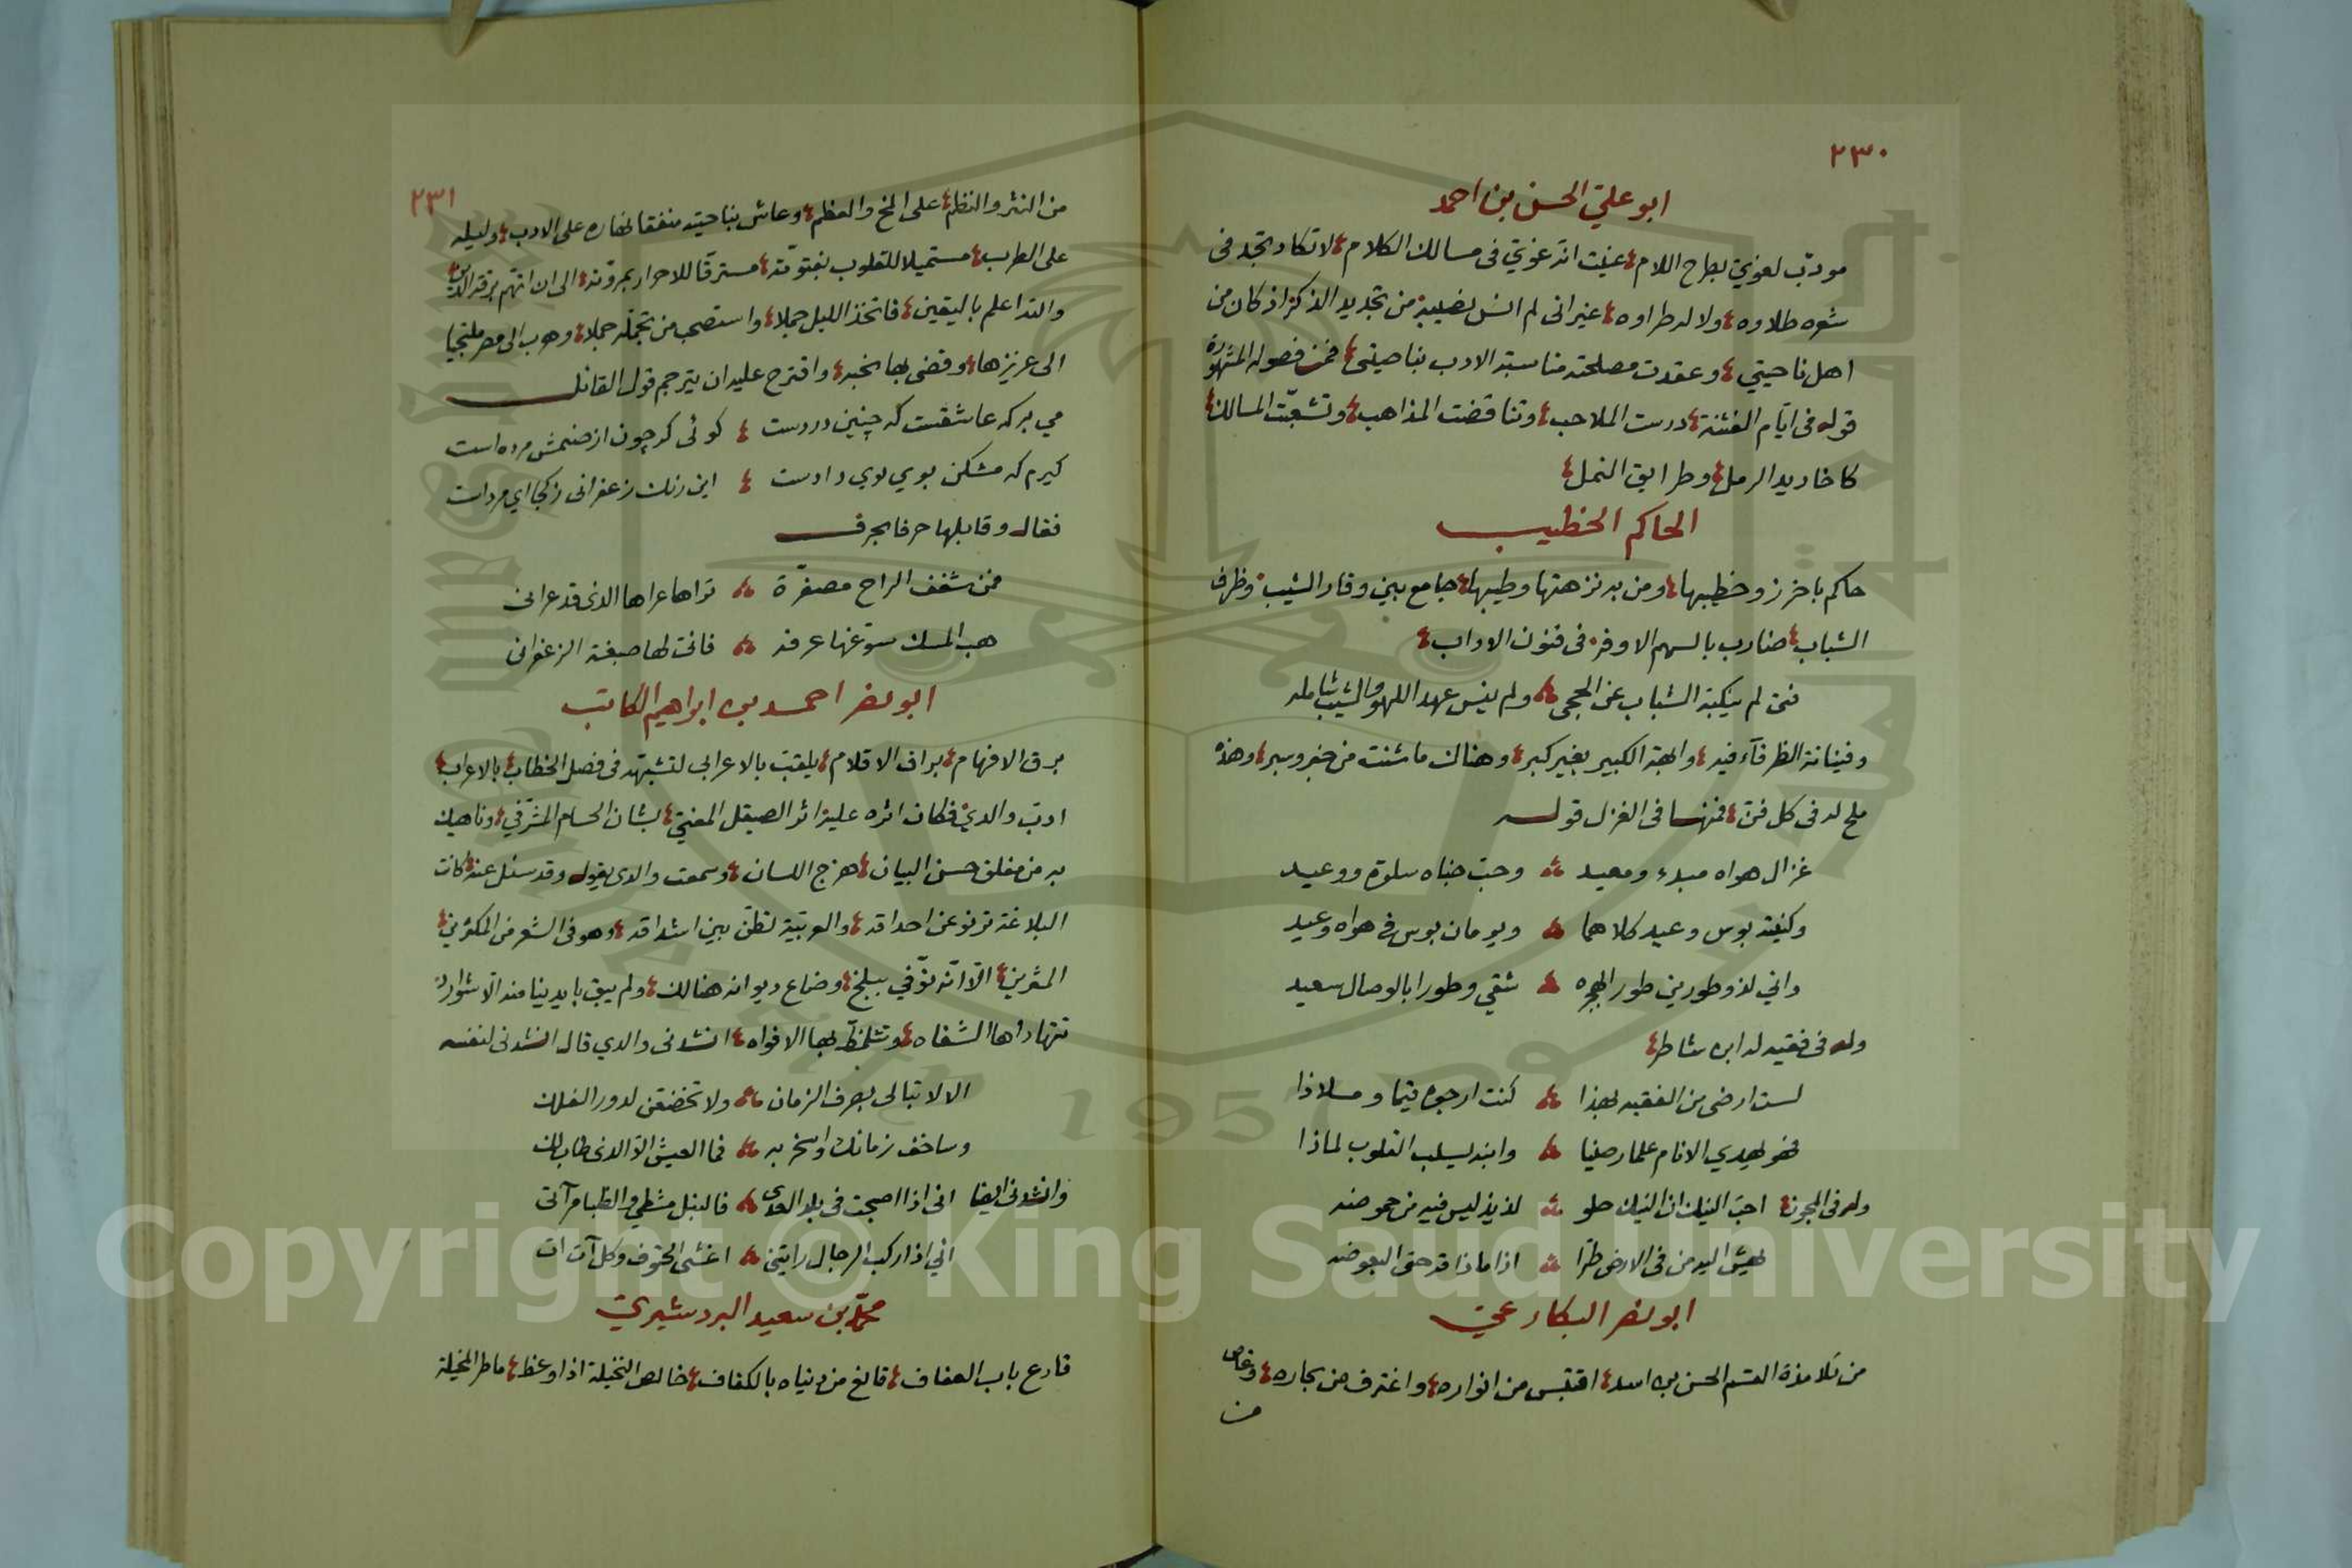 ٢٣٠
ابو علي الحسن بن احمد
مودّب لغويّ بطرح اللام؛ عنيت انه غويّ فى مسالك الكلام؛ لا تكاد تجد فى
شعره طلاوه؛ ولا له طراوه؛ غير انى لم انس نصيبه من تجديد الذكر اذ كان من
اهل ناحيتي؛ وعقدت مصلحته مناسبة الادب بناصيتى؛ فمن فصوله المشهورة
قوله فى ايّام الفتنة؛ درست الملاحب؛ وتناقضت المذاهب؛ وتشعبّت المسالك؛
كاخاديد الرمل؛ وطرايق النمل؛
الحاكم الخطيب
حاكم باخرز وخطيبها؛ ومن به نزهتها وطيبها؛ جامع بين وقار الشيب وظرف
الشباب؛ ضارب بالسهم الاوفر فى فنون الاداب؛
فتى لم ينكبه الشباب عن الحجى ولم ينس عهد اللهو والشيب شامله
وفينانة الظرفآء فيه؛ وابهة الكبير بغير كبر؛ وهناك ما شئت من خبر وسبر؛ وهذه
ملح له فى كل فنّ؛ فمنها فى الغزل قوله
غزال هواه مبدء ومعيد وحبّ جناه سلوة ووعيد
وكنيته بوس وعيد كلاهما ويومان بوس فى هواه وعيد
واني لذو طورين طور الهجره شقي وطورا بالوصال سعيد
وله فى فقيه له ابن شاطر؛
لست ارضى من الفقيه بهذا كنت ارجوه قيما وملاذا
فهو يهدي الانام علما رضيا وابنه يسلب القلوب لماذا
وله فى المجون؛ احبّ النيك ان النيك حلو لذيذ ليس فيه من حموضه
يهشّ اليه من فى الارض طرّا اذا ما ذاقه حتى البعوضه
ابو نصر البكارعي
من تلامذة القسم الحسن بن اسد؛ اقتبس من انواره؛ واغترف من بحاره؛ وغاص
من
٢٣١
من النثر والنظم؛ على المخ والعظم؛ وعاش بناحيته منفقا نهاره على الادب؛ وليله
على الطرب؛ مستميلا للقلوب بفتوّته؛ مسترقّا للاحرار بمروّته؛ الى ان اتهم برقة الدين؛
والله اعلم باليقين؛ فاتخذ الليل جملا؛ واستصحب من تجمّله جملا؛ وهرب الى مصر ملتجيا
الى عزيزها؛ وقضى بها نحبه؛ واقترح عليه ان يترجم قول القائل
مي بر كه عاشقست كه چنين دردست ؛ كوئى كه چون از صنمش مرده است
كيرم كه مشكن بوي بوي دادست ؛ اين رنك زعفرانى زكجا اي مردات
فقال وقابلها حرفا بحرف
فمن شغف الراح مصفرّة تراها عراها الذى قد عرانى
هب المسك سوّغها عرفه فانت لها صبغة الزعفرانى
ابو نصر احمد بن ابراهيم الكاتب
برق الافهام؛ براق الاقلام؛ يلقب بالاعرابى لتشبهّه فى فصل الخطاب؛ بالاعراب؛
ادبّ والدي فكان اثره عليه اثر الصيقل المعنيّ؛ بشان الحسام المشرّفي؛ وناهيك
به من مفلق حسن البيان؛ هزج اللسان؛ وسمعت والدى يقول وقد سئل عنه كانت
البلاغة ترنو عن احداقه؛ والعربيّة تطنّ بين اشداقه؛ وهو فى الشعر من المكثرين؛
المثرين؛ الاّ انّه توّفي ببلخ؛ وضاع ديوانه هنالك؛ ولم يبق بايدينا منه الاّ شوارد
تتهاداها الشفاه؛ وتتلمّظ بها الافواه؛ انشدنى والدي قال انشدنى لنفسه
الا لا تبالى بصرف الزمان ولا تخضعن لدور الفلك
وساخف زمانك واسخر به فما العيش الاّ الذى طاب لك
وانشدنى ايضا انى اذا اصبحت فى بلد العدى فالنبل مشطي والظبا مرآتى
اني اذا ركب الرجال رايتنى اغشى الحتوف وكل آت ات
محمّد بن سعيد البردشيري
قارع باب العفاف؛ قانع من دنياه بالكفاف؛ خالص النخيلة اذا وعظ؛ ماطر المخيلة
Copyright © King Saud University
1957